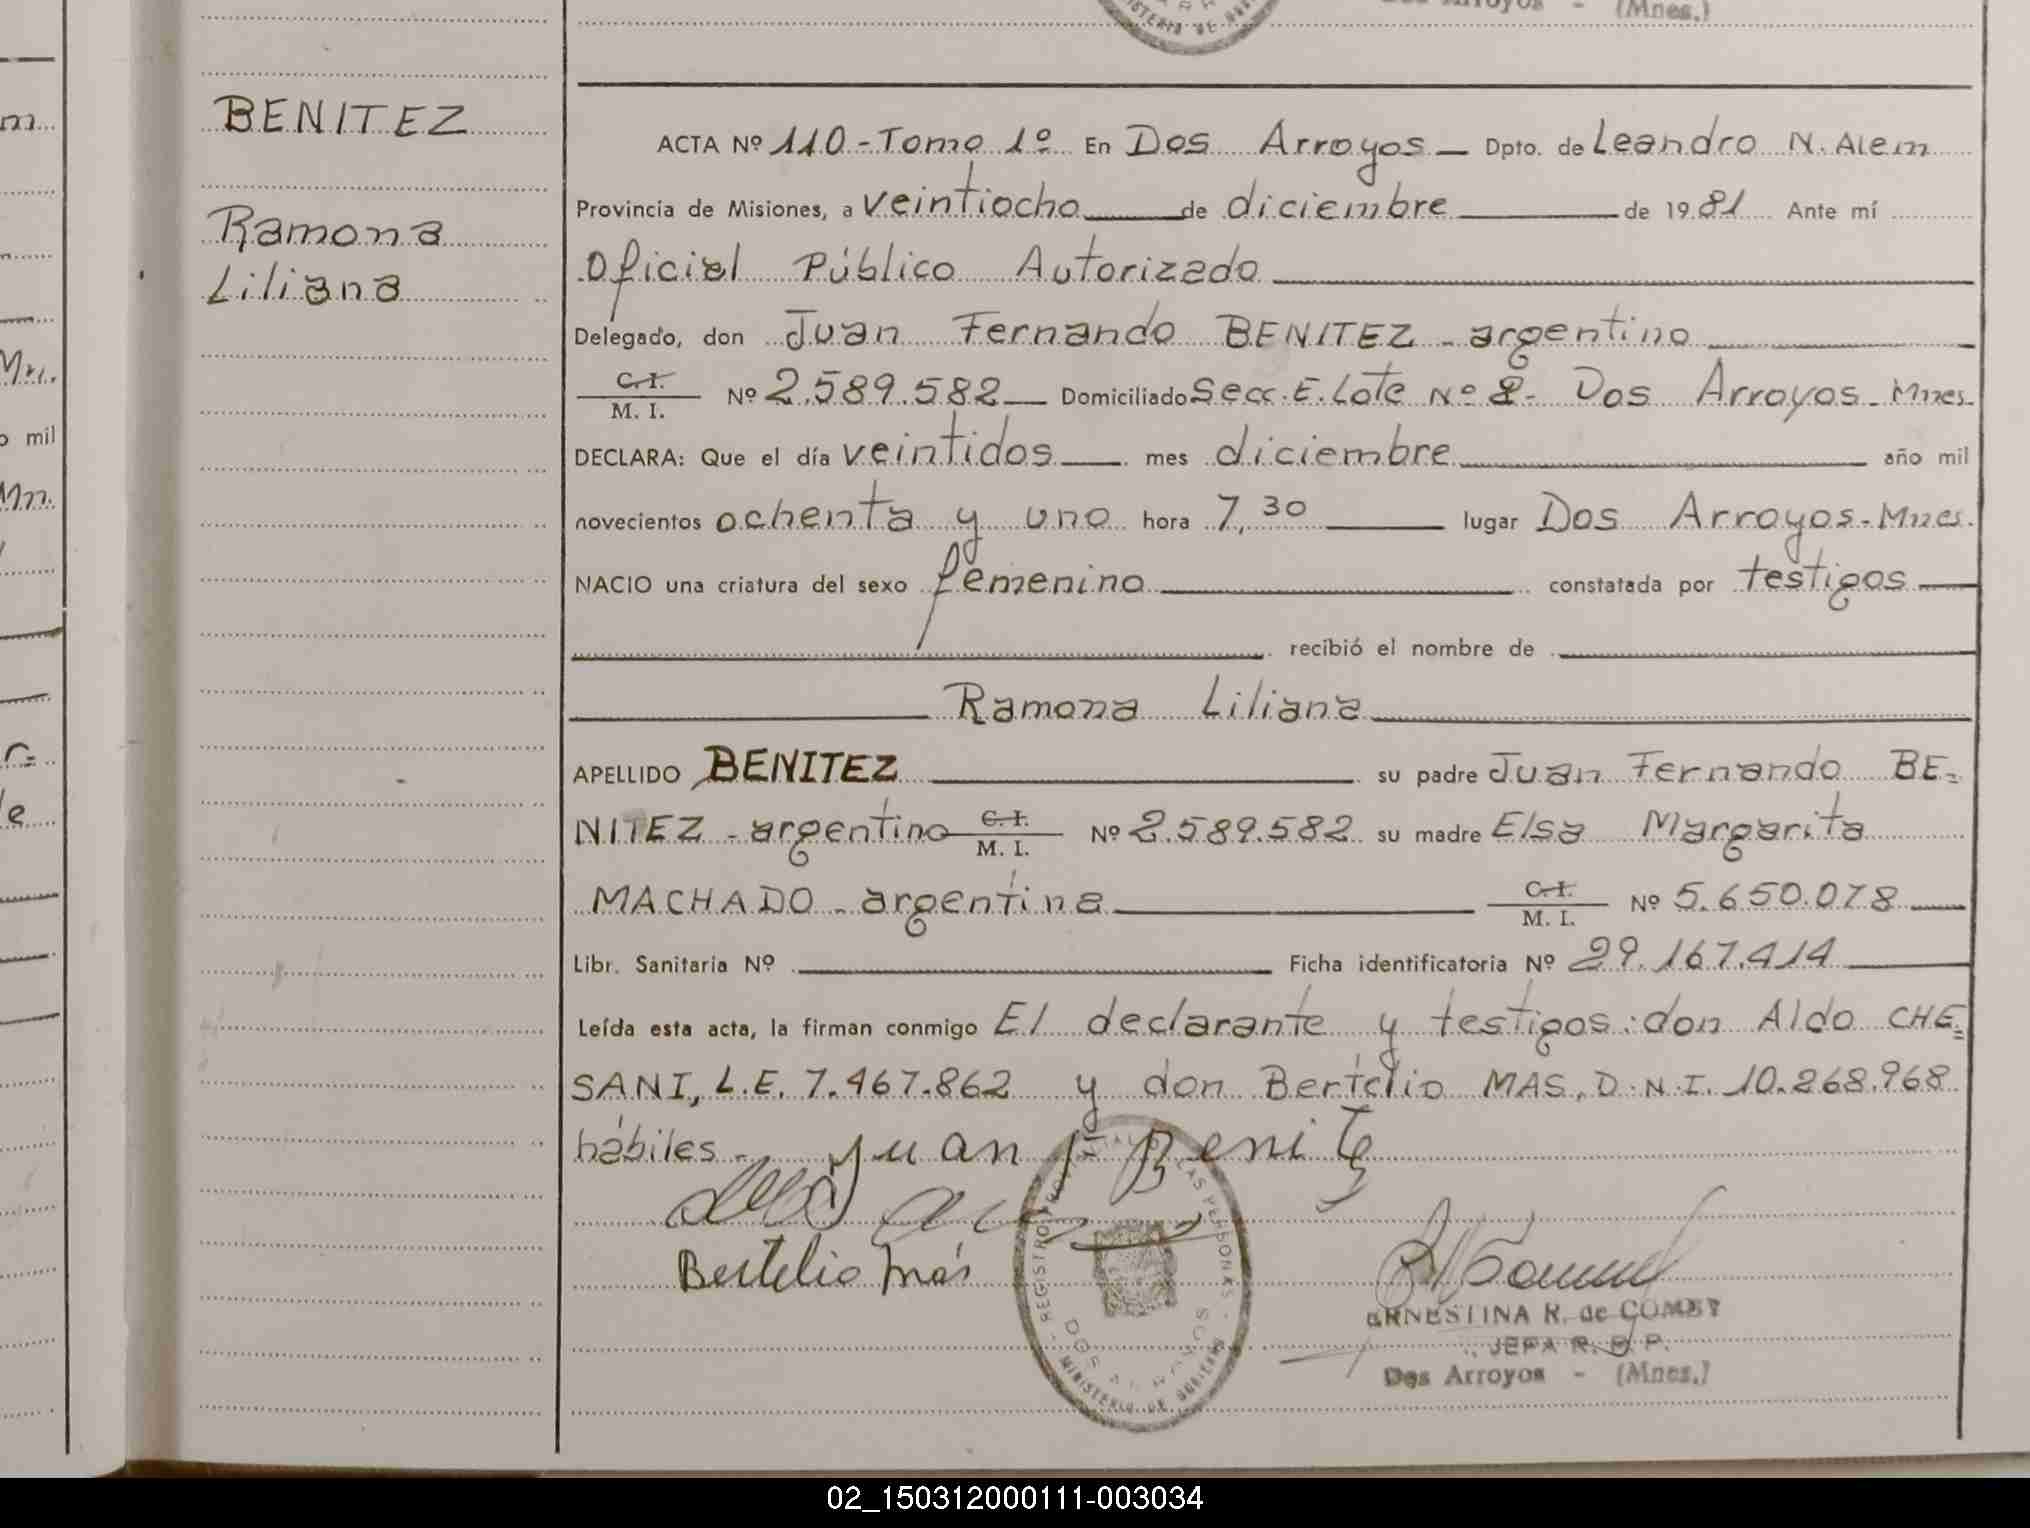 Dos Arroyos - (Mnes.)
BENITEZ
Ramona
Liliana
ACTA Nº 110 - Tomo 1º En Dos Arroyos — Dpto. de Leandro N. Alem
Provincia de Misiones, a veintiocho de diciembre de 1981 Ante mí
Oficial Público Autorizado
Delegado, don Juan Fernando BENITEZ - argentino
C. I.
M. I. Nº 2.589.582 Domiciliado Secc. E. Lote Nº 2 - Dos Arroyos - Mnes.
DECLARA: Que el día veintidos mes diciembre año mil
novecientos ochenta y uno hora 7,30 lugar Dos Arroyos - Mnes.
NACIO una criatura del sexo femenino constatada por testigos
recibió el nombre de
Ramona Liliana
APELLIDO BENITEZ su padre Juan Fernando BE=
NITEZ - argentino C. I. M. I. Nº 2.589.582 su madre Elsa Margarita
MACHADO - argentina C. I. M. I. Nº 5.650.078
Libr. Sanitaria Nº Ficha identificatoria Nº 29.167.414
Leída esta acta, la firman conmigo El declarante y testigos: don Aldo CHE=
SANI, L.E. 7.467.862 y don Bertelio MAS, D.N.I. 10.268.968
hábiles -
Juan F Benitez
Bertelio Más
ERNESTINA R. de COMBY
JEFA R. D. P.
Dos Arroyos - (Mnes.)
02_150312000111-003034